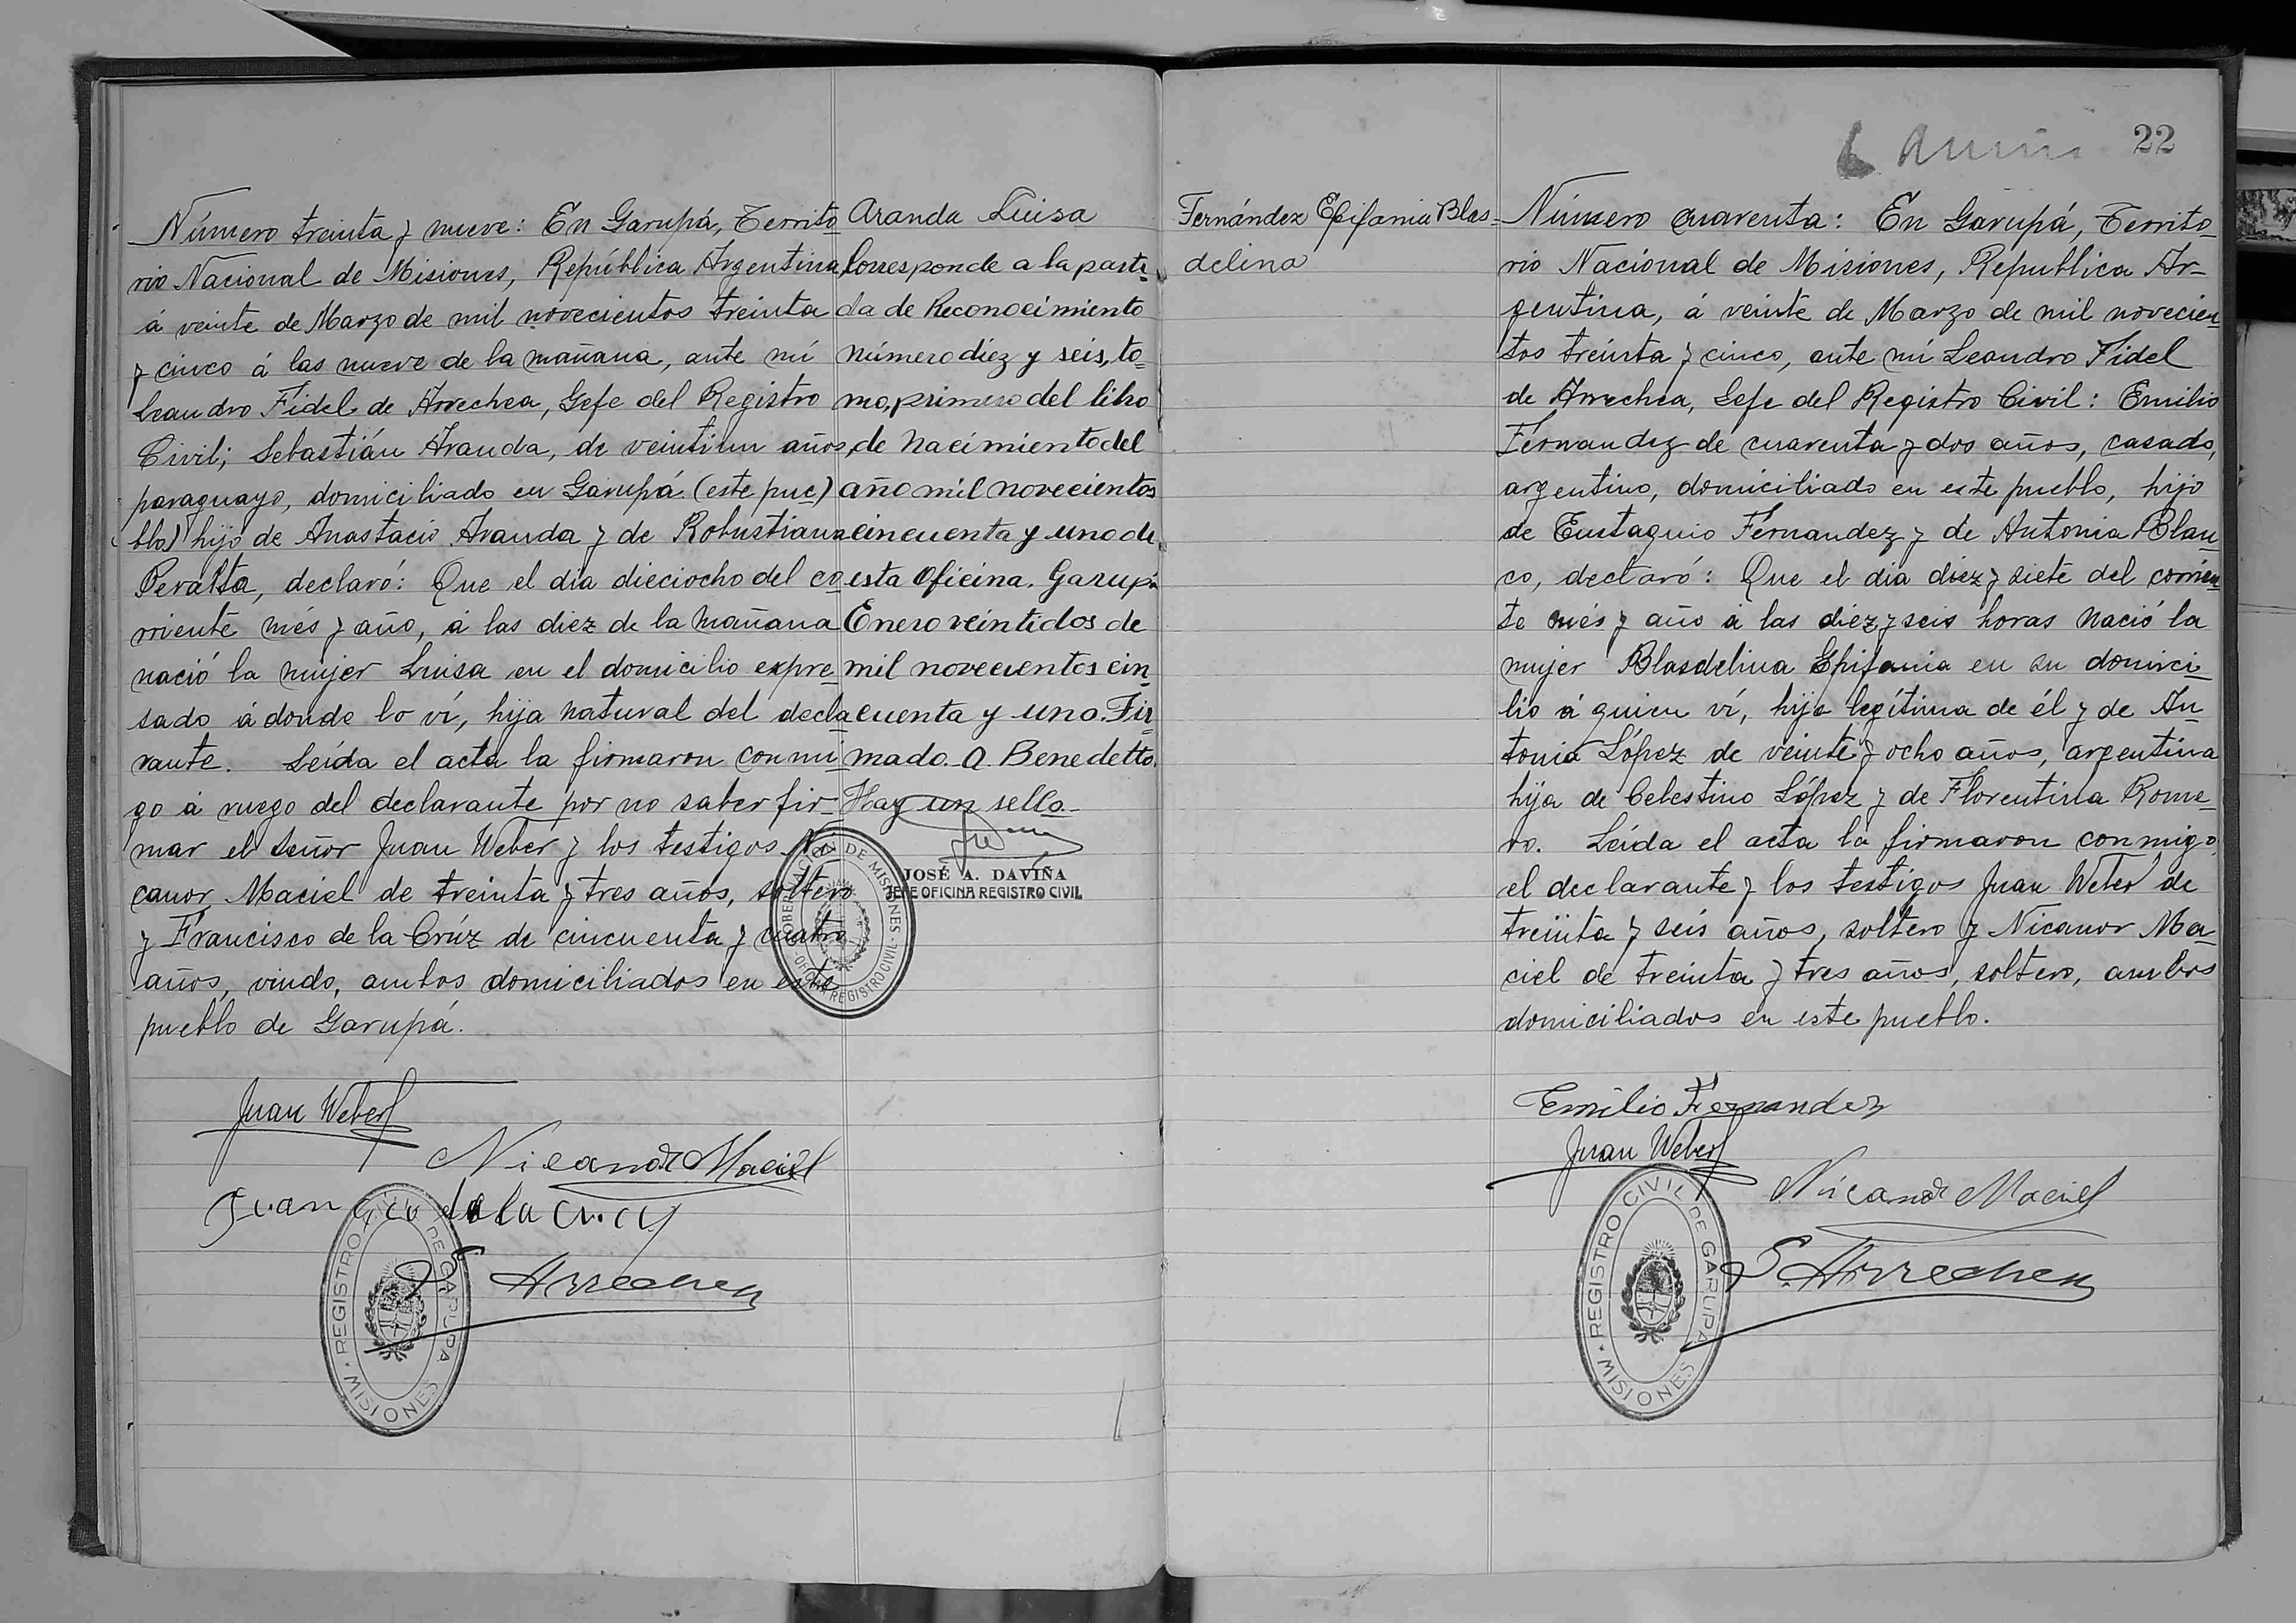 Número treinta y nueve: En Garupá, Territo
rio Nacional de Misiones, República Argentina
á veinte de Marzo de mil novecientos treinta
y cinco á las nueve de la mañana, ante mí
Leandro Fidel de Arrechea, Gefe del Registro
Civil; Sebastián Aranda, de veintiun años,
paraguayo, domiciliado en Garupá (este pue)
blo) hijo de Anastacio Aranda y de Robustiana
Peralta, declaró: Que el dia dieciocho del co
rriente més y año, á las diez de la mañana
nació la mujer Luisa en el domicilio expre
sado á donde lo ví, hija natural del decla
rante. Leída el acta la firmaron conmi
go á ruego del declarante por no saber fir-
mar el señor Juan Weber y los testigos Ni
canor Maciel de treinta y tres años, soltero
y Francisco de la Crúz de cincuenta y cuatro
años, viudo, ambos domiciliados en este
pueblo de Garupá.
Juan Weber
Nicanor Maciel
Francisco de la Cruz
Arrechea
REGISTRO CIVIL DE GARUPA
MISIONES
Aranda Luisa
Corresponde a la parti
da de Reconocimiento
número diez y seis, to
mo, primero del libro
de Nacimiento del
año mil novecientos
cincuenta y uno de
esta Oficina. Garupá
Enero veintidos de
mil novecientos cin
cuenta y uno. Fir
mado. A. Benedetto.
Hay un sello-
JOSÉ A. DAVIÑA
JEFE OFICINA REGISTRO CIVIL
GOBERNACIÓN DE MISIONES - OFICINA REGISTRO CIVIL
22
Fernández Epifania Blas-
delina
Número cuarenta: En Garupá, Territo
rio Nacional de Misiones, Republica Ar-
gentina, á veinte de Marzo de mil novecien
tos treinta y cinco, ante mí Leandro Fidel
de Arrechea, Gefe del Registro Civil: Emilio
Fernandez de cuarenta y dos años, casado,
argentino, domiciliado en este pueblo, hijo
de Eustaquio Fernandez y de Antonia Blan
co, declaró: Que el dia diez y siete del corrien
te més y año á las diez y seis horas nació la
mujer Blasdelina Epifania en su domici
lio á quien ví, hija legítima de él y de An
tonia López de veinte y ocho años, argentina
hija de Celestino López y de Florentina Rome
ro. Leída el acta la firmaron conmigo
el declarante y los testigos Juan Weber de
treinta y seis años, soltero y Nicanor Ma
ciel de treinta y tres años, soltero, ambos
domiciliados en este pueblo.
Emilio Fernandez
Juan Weber
Nicanor Maciel
Arrechea
REGISTRO CIVIL DE GARUPA
MISIONES